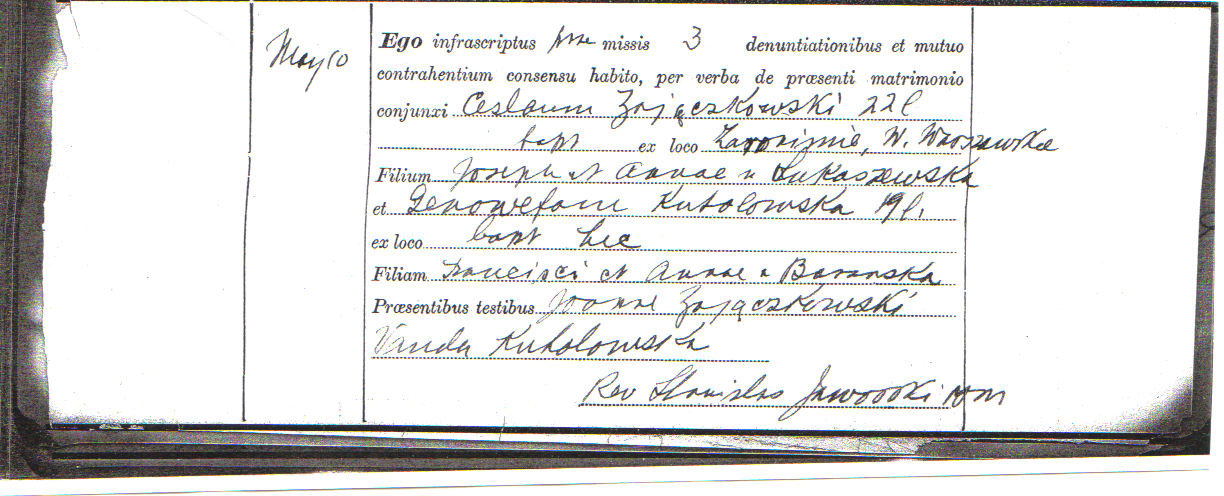 May 10
Ego infrascriptus præ missis 3 denuntiationibus et mutuo
contrahentium consensu habito, per verba de præsenti matrimonio
conjunxi Ceslaum Zajączkowski 22 l
bapt ex loco W. Warszawska
Filium Joseph et Annae n Lukaszewska
et Genowefam Kutolowska 19 l.
ex loco bapt hic
Filiam Francisci et Annae n Baranska
Præsentibus testibus Joanne Zajączkowski
Vanda Kutolowska
Rev Stanislas Jaworski